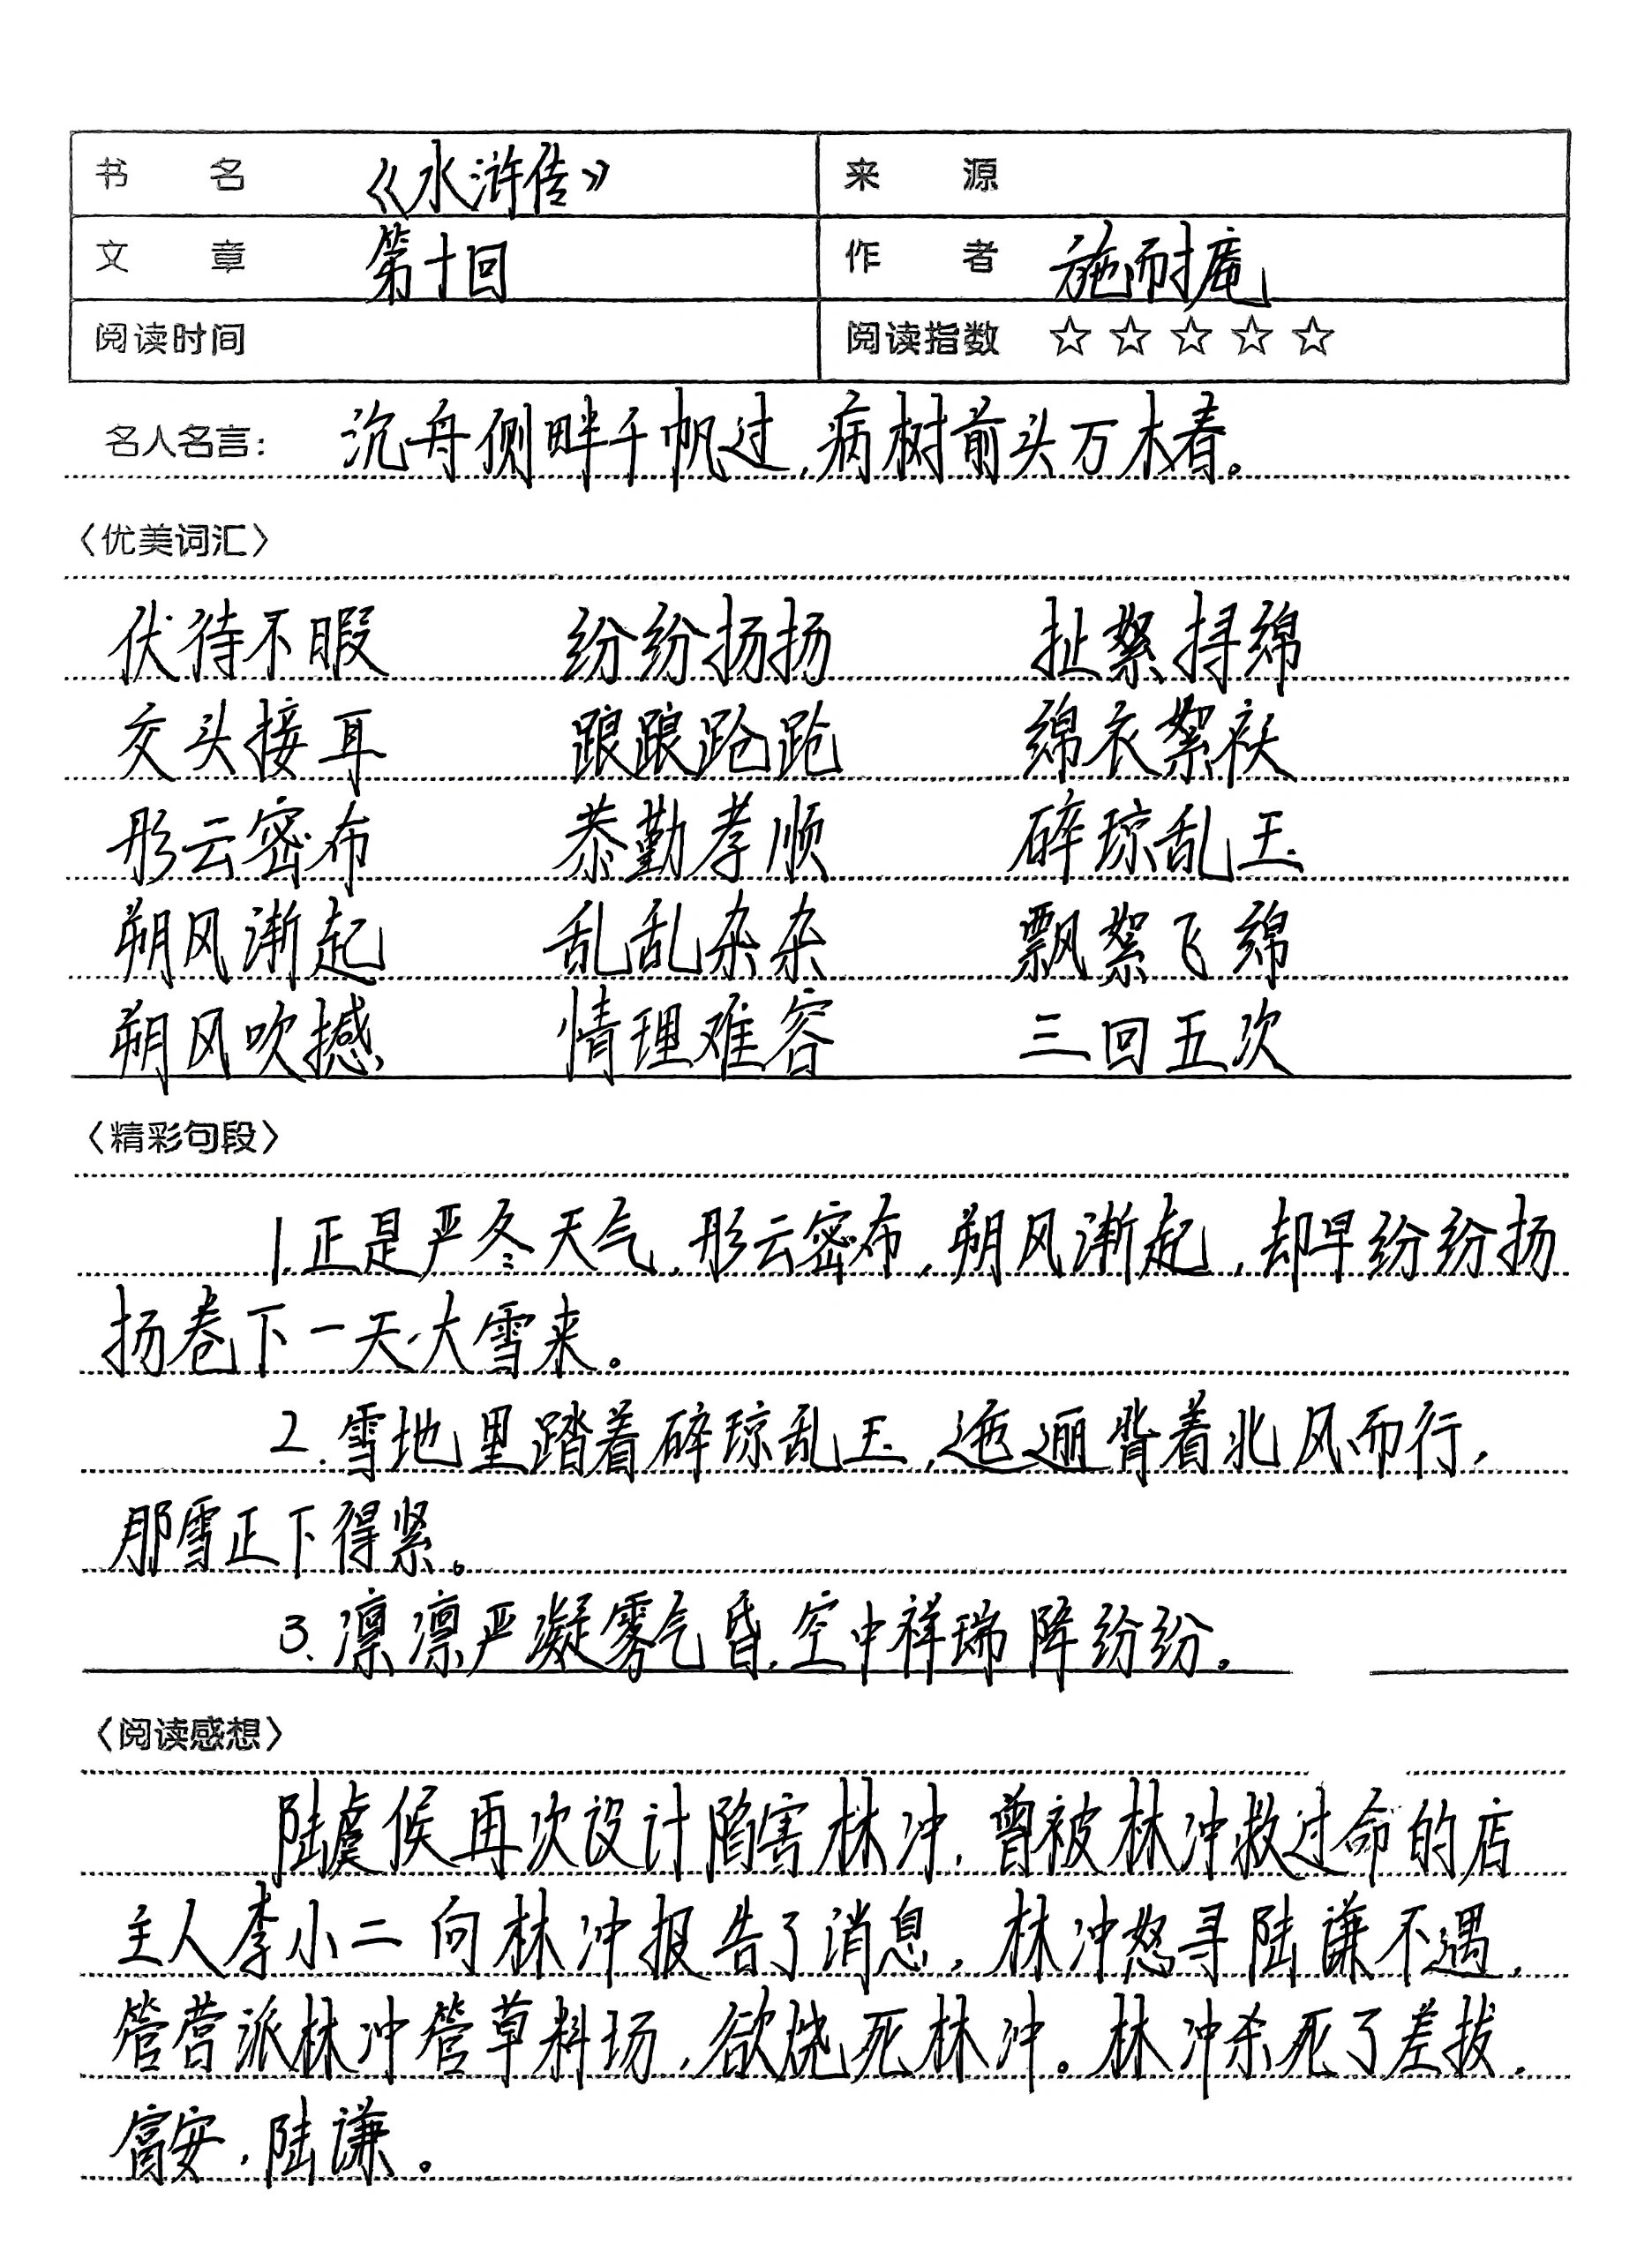 书 名 《水浒传》 来 源
文 章 第十回 作 者 施耐庵
阅读时间 阅读指数 ☆☆☆☆☆
名人名言: 沉舟侧畔千帆过,病树前头万木春。
〈优美词汇〉
伏待不暇 纷纷扬扬 扯絮挦绵
交头接耳 踉踉跄跄 绵衣絮袄
彤云密布 恭勤孝顺 碎琼乱玉
朔风渐起 乱乱杂杂 飘絮飞绵
朔风吹撼 情理难容 三回五次
〈精彩句段〉
1.正是严冬天气,彤云密布,朔风渐起,却早纷纷扬
扬卷下一天大雪来。
2.雪地里踏着碎琼乱玉,迤逦背着北风而行,
那雪正下得紧。
3.凛凛严凝雾气昏,空中祥瑞降纷纷。
〈阅读感想〉
陆虞候再次设计陷害林冲,曾被林冲救过命的店
主人李小二向林冲报告了消息,林冲怒寻陆谦不遇,
管营派林冲管草料场,欲烧死林冲。林冲杀死了差拨,
富安,陆谦。